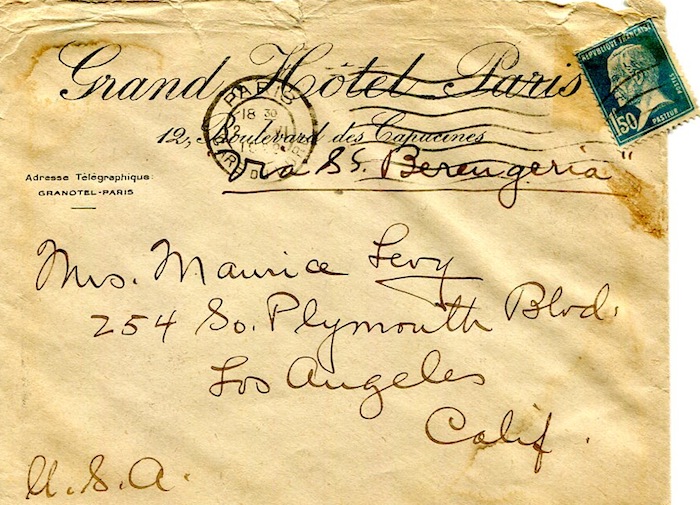 Grand Hôtel Paris
12, Boulevard des Capucines
Adresse Télégraphique:
GRANOTEL-PARIS
PARIS
18 30
GARE
REPUBLIQUE FRANÇAISE
POSTES
PASTEUR
1F50
"Via SS. Berengeria"
Mrs. Maurice Levy
254 So. Plymouth Blvd.
Los Angeles
Calif.
U.S.A.